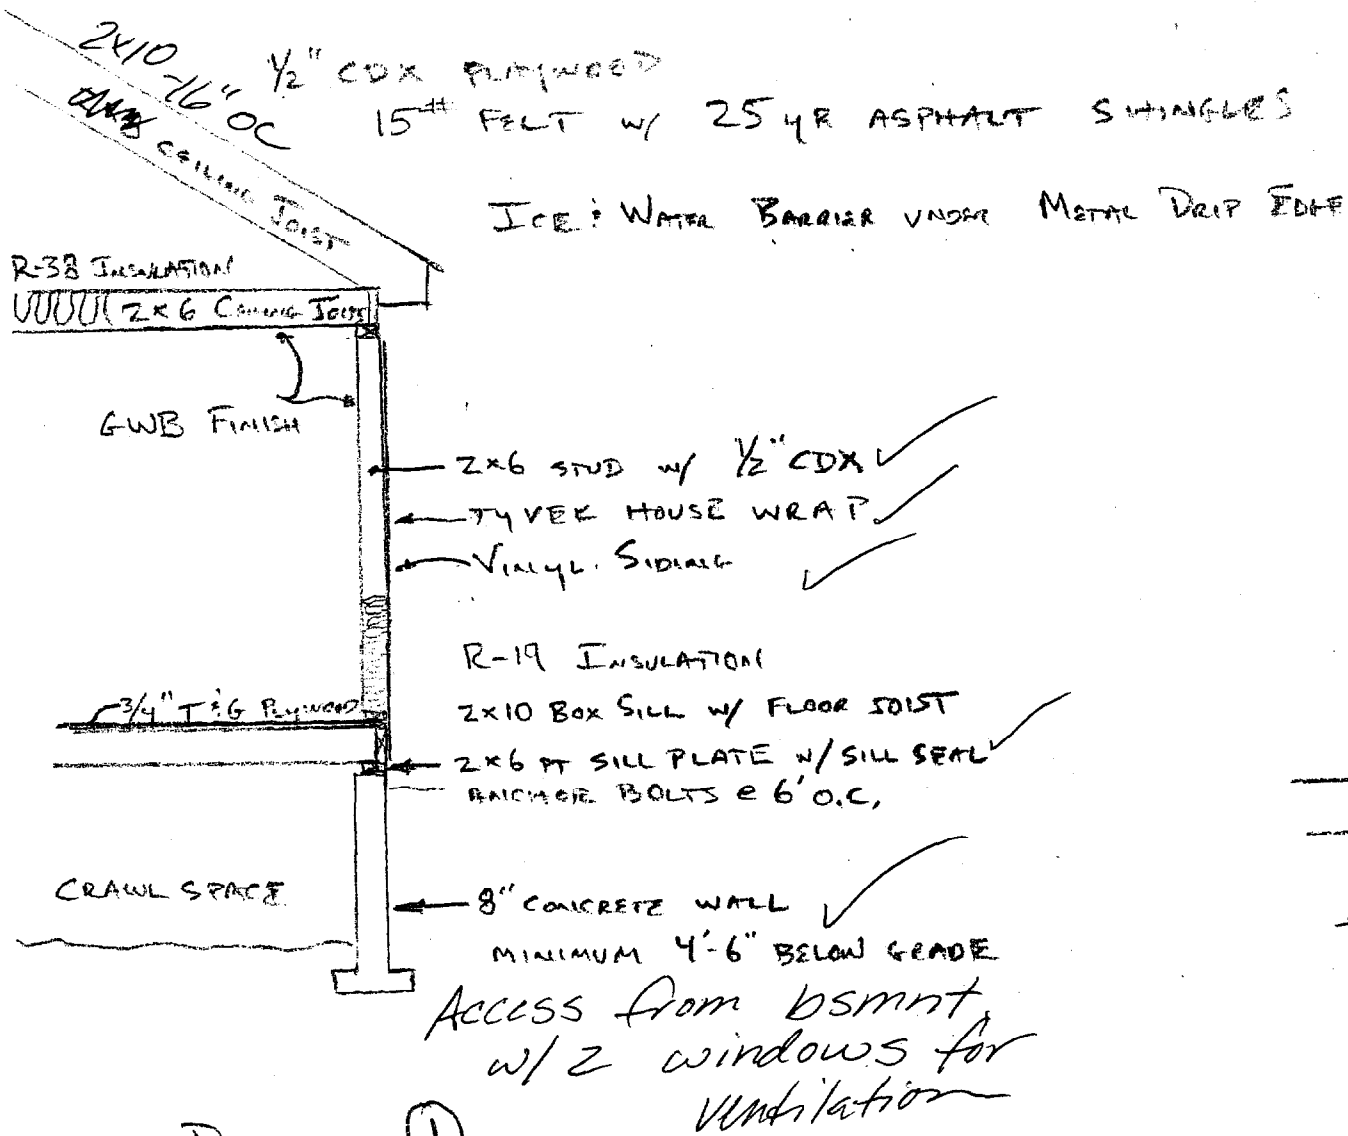 2x10
-16" OC
CEILING JOIST
1/2" CDX PLAYWOOD
15# FELT W/ 25 YR ASPHALT SHINGLES
ICE & WATER BARRIER UNDER METAL DRIP EDGE
R-38 INSULATION
2x6 CEILING JOIST
GWB FINISH
2x6 STUD W/ 1/2" CDX
TYVEK HOUSE WRAP
VINYL SIDING
R-19 INSULATION
3/4" T&G PLYWOOD
2x10 BOX SILL W/ FLOOR JOIST
2x6 PT SILL PLATE W/ SILL SEAL
ANCHOR BOLTS @ 6' O.C.
CRAWL SPACE
8" CONCRETE WALL
MINIMUM 4'-6" BELOW GRADE
Access from bsmnt.
w/ 2 windows for
ventilation
1